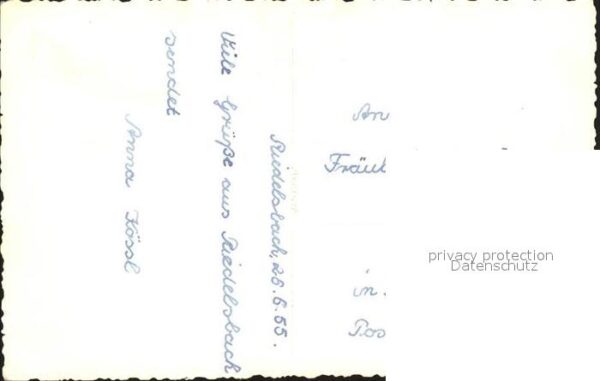 Riedelsbach, 26.6.55.
Viele Grüße aus Riedelsbach
sendet
Anna Kössl
An
Fräul
in
Pos
privacy protection
Datenschutz